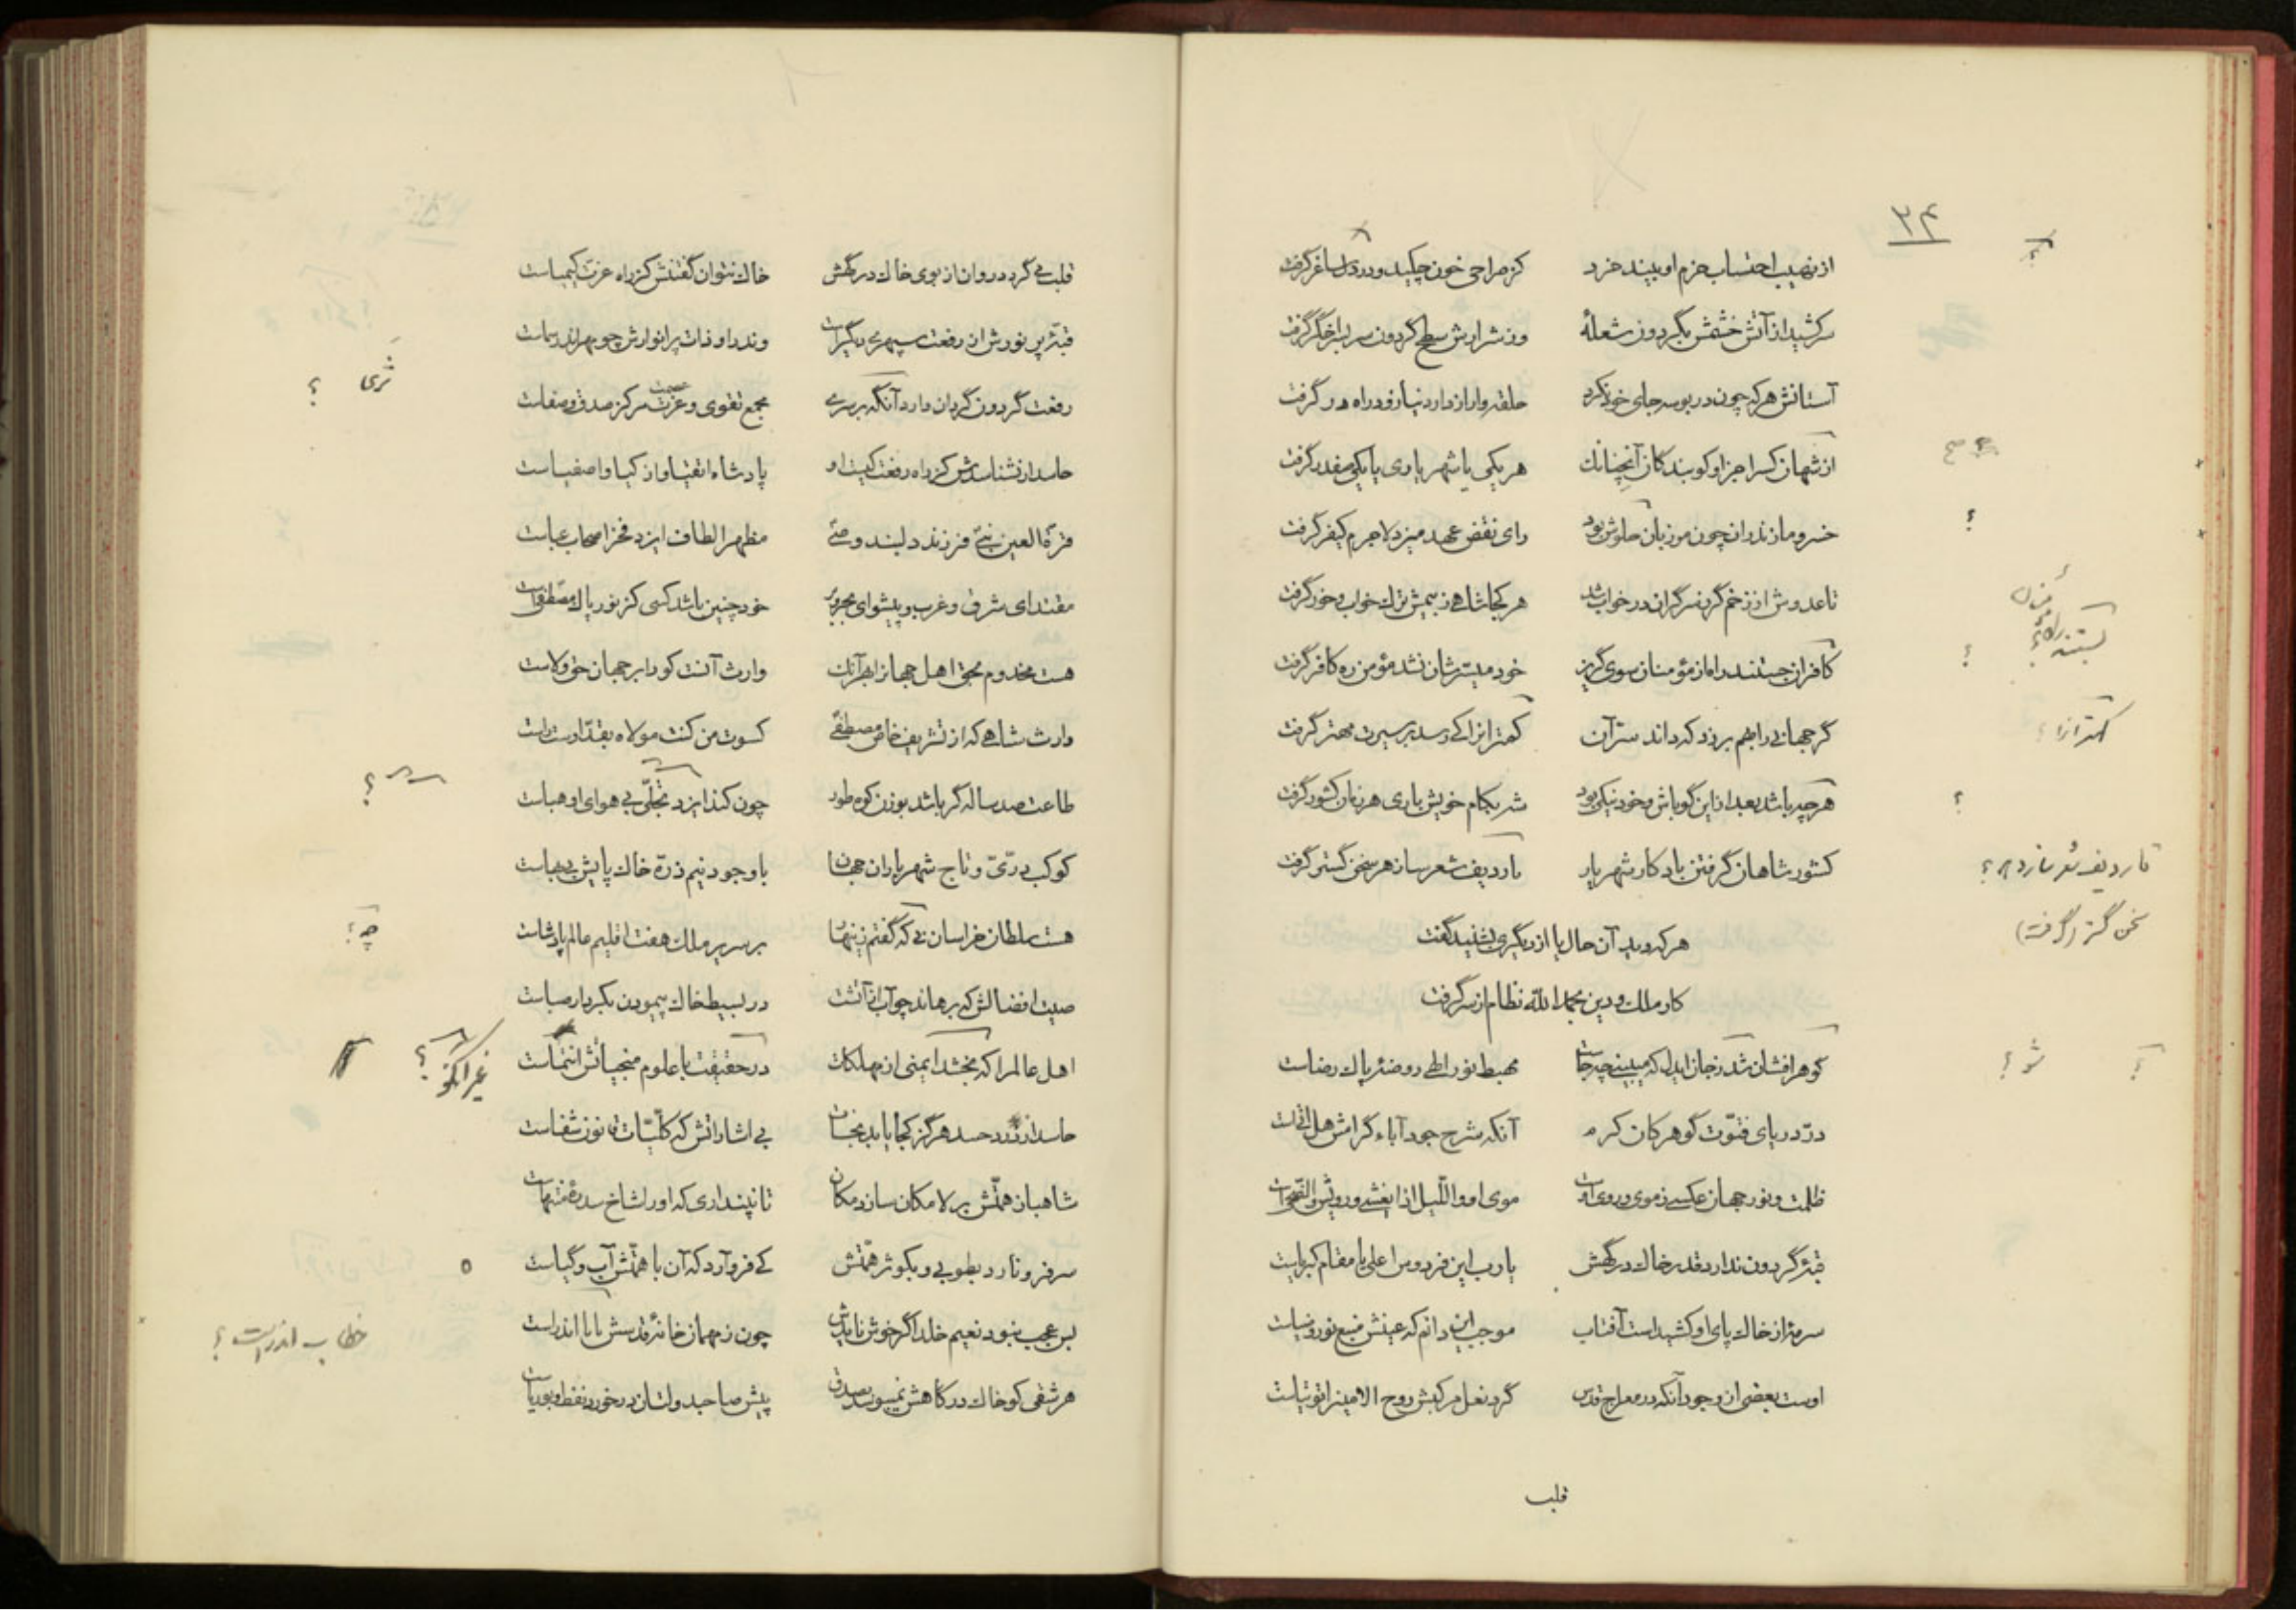 ۳۴
از نهیب احتساب حزم او بیند خرد کز صراحی خون چکید و درد دل ساغر گرفت
سرکشید از آتش خشمش بگردون شعلهٔ وز شرارش سطح گردون سربسر اخگر گرفت
آستانش هر که چون در بوسه جای خود نکرد حلقه وار از دار دنیا رفو در راه در گرفت
از شهان کس را جز او کو بندکان آنچنانك هر یکی یا شهریاری یا یکی صفدر گرفت
خسرو مازندران چون مرزبان جلوش بود رای نقض عهد میزد لاجرم کیفر گرفت
تا عدوش از زخم گرز سرگران در خواب شد هر کجا شاهی ز بیمش ترك خواب و خور گرفت
کافران جستند راه از مؤمنان سوی گریز خود میسرشان نشد مؤمن ره کافر گرفت
گر جهانی را بهم بر زد که داند سر آن کهتران را کی رسد بر سیرت مهتر گرفت
هر چه باشد بعد از این گو باش و خود نیکی بود شه بکام خویش باری هر زمان کشور گرفت
کشور شاهان گرفتن باد کار شهریار تا ردیف شعر سازد هر سخن گستر گرفت
هر که دید آن حال یا از دیگری بشنید گفت
کار ملك و دین بحمد الله نظام از سر گرفت
گوهر افشان شد ز جان ایدل که میبینی چه جاست مهبط نور الهی روضهٔ پاك رضاست
درّ دریای فتوّت گوهر کان کرم آنکه شرح جود آباء گرامش هل اتی است
ظلمت و نور جهان عکسی ز موی و روی اوست موی او واللّیل اذا یغشی و رویش والضّحی است
قبهٔ گردون ندارد قدر خاك درگهش یا رب این فردوس اعلی یا مقام کبریاست
سرمهٔ از خاك پای او کشیدست آفتاب موجب این دانم که عینش منبع نور و ضیاست
اوست بعضی از وجود آنکه در معراج قدس گرد نعل مرکبش روح الامین را توتیاست
قلب
؟
؟
؟
کهتر از را ؟
؟
تا ردیف شعر سازد هر ؟
سخن گستر (گرفت)
شو ؟
؟
قلب می گردد روان از بوی خاك درگهش خاك نتوان گفتنش کز راه عزت کیمیاست
قبّهٔ پر نورش از رفعت سپهری دیگرست وندر او ذات پر انوارش چو مهر اندر سماست
رفعت گردون گردان دارد آنگه بر سری مجمع تقوی و عزت مرکز صدق و صفاست
حاسد ار نشناسدش کز راه رفعت کیست او پادشاه اتقیا و ازکیا و اصفیاست
قرة العین نبی فرزند دلبند وصی مظهر الطاف ایزد فخر اصحاب عباست
مقتدای شرق و غرب و پیشوای بحر و بر خود چنین باشد کسی کز نور پاك مصطفی است
هست مخدوم بحق اهل جهانرا بهر آنك وارث آنست کو را بر جهان حق ولاست
وارث شاهی که از تشریف خاص مصطفی کسوت من کنت مولاه بقدّ اوست راست
طاعت صد ساله گر باشد بوزن کوه طور چون کند ایزد تجلّی بی هوای او هباست
کوکب درّی و تاج شهریاران جهان با وجود نیم ذرّه خاك پایش بی بهاست
هست سلطان خراسان نی که گفتم زینهار بر سریر ملك هفت اقلیم عالم پادشاست
صیت افضالش که برهاند چو آب از آتشت در بسیط خاك پیمودن بکردار صباست
اهل عالم را که بخشد ایمنی از مهلکات در حقیقت با علوم منجیاتش انتماست
حاسد از درد حسد هرگز کجا یابد نجات بی اشاراتش که کلّیات قانون شفاست
شاهباز همّتش بر لا مکان سازد مکان تا نپنداری که او را شاخ سدره منتهاست
سر فرو نارد بطوبی و بکوثر همّتش کی فرو آرد که آن با همّتش آب و گیاست
بس عجب نبود نعیم خلد اگر خوش نایدش چون ز مهمانخانهٔ قدسش ابا اندر است
هر شقی کو خاك درگاهش نبوسد بصدق پیش صاحبدولتان در خورد نفط و بوریاست
عصمت
ثری ؟
؟
چه ؟
؟
خطا ب اندر است ؟